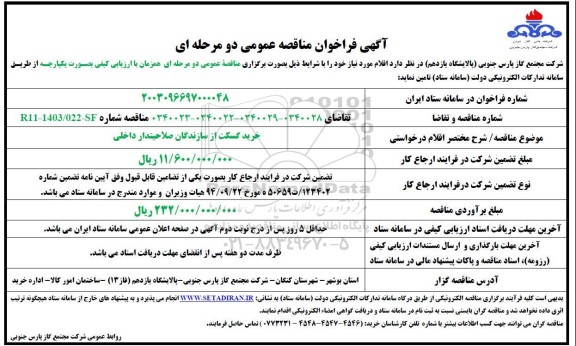 آگهی فراخوان مناقصه عمومی دو مرحله ای
شرکت ملی گاز ایران
شرکت مجتمع گاز پارس جنوبی
شرکت مجتمع گاز پارس جنوبی (پالایشگاه یازدهم) در نظر دارد اقلام مورد نیاز خود را با شرایط ذیل بصورت برگزاری مناقصه عمومی دو مرحله ای همزمان با ارزیابی کیفی بصورت یکپارچه از طریق
سامانه تدارکات الکترونیکی دولت (سامانه ستاد) تامین نماید:
شماره فراخوان در سامانه ستاد ایران
۲۰۰۳۰۹۶۶۹۷۰۰۰۰۴۸
شماره مناقصه و تقاضا
تقاضای ۰۳۴۰۰۲۸-۰۳۴۰۰۲۹-۰۳۴۰۰۲۲-۰۳۴۰۰۲۳ مناقصه شماره R11-1403/022-SF
موضوع مناقصه/ شرح مختصر اقلام درخواستی
خرید گسکت از سازندگان صلاحیتدار داخلی
مبلغ تضمین شرکت در فرایند ارجاع کار
۱۱/۶۰۰/۰۰۰/۰۰۰ ریال
نوع تضمین شرکت درفرایند ارجاع کار
تضمین شرکت در فرایند ارجاع کار بصورت یکی از تضامین قابل قبول وفق آیین نامه تضمین شماره
۱۲۳۴۰۲/ت۵۰۶۵۹ ه مورخ ۹۴/۰۹/۲۲ هیات وزیران و موارد مندرج در سامانه ستاد می باشد.
مبلغ برآوردی مناقصه
۲۳۲/۰۰۰/۰۰۰/۰۰۰ ریال
آخرین مهلت دریافت اسناد ارزیابی کیفی در سامانه ستاد
حداقل ۵ روز پس از درج نوبت دوم آگهی در صفحه اعلان عمومی سامانه ستاد ایران می باشد.
آخرین مهلت بارگذاری و ارسال مستندات ارزیابی کیفی
(رزومه)، اسناد مناقصه و پاکات پیشنهاد مالی در سامانه ستاد
ظرف مدت دو هفته پس از انقضای مهلت دریافت اسناد می باشد.
آدرس مناقصه گزار
استان بوشهر- شهرستان کنگان- شرکت مجتمع گاز پارس جنوبی-پالایشگاه یازدهم (فاز۱۳) -ساختمان امور کالا- اداره خرید
بدیهی است کلیه فرآیند برگزاری مناقصه الکترونیکی از طریق درگاه سامانه تدارکات الکترونیکی دولت (سامانه ستاد) به نشانی: WWW.SETADIRAN.IR انجام می پذیرد و به پیشنهاد های خارج از سامانه ستاد هیچگونه ترتیب
اثری داده نخواهد شد و مناقصه گران بایستی نسبت به ثبت نام در سامانه ستاد و دریافت گواهی امضاء الکترونیکی اقدام نمایند.
مناقصه گران می توانند جهت کسب اطلاعات بیشتر با شماره تلفن کارشناس خرید: (۴۵۴۶-۴۵۴۷-۴۵۴۸ - ۰۷۷۳۲۳۱) تماس حاصل فرمایند.
روابط عمومی شرکت مجتمع گاز پارس جنوبی
۰۲۱-۸۸۳۴۹۶۷۰-۵